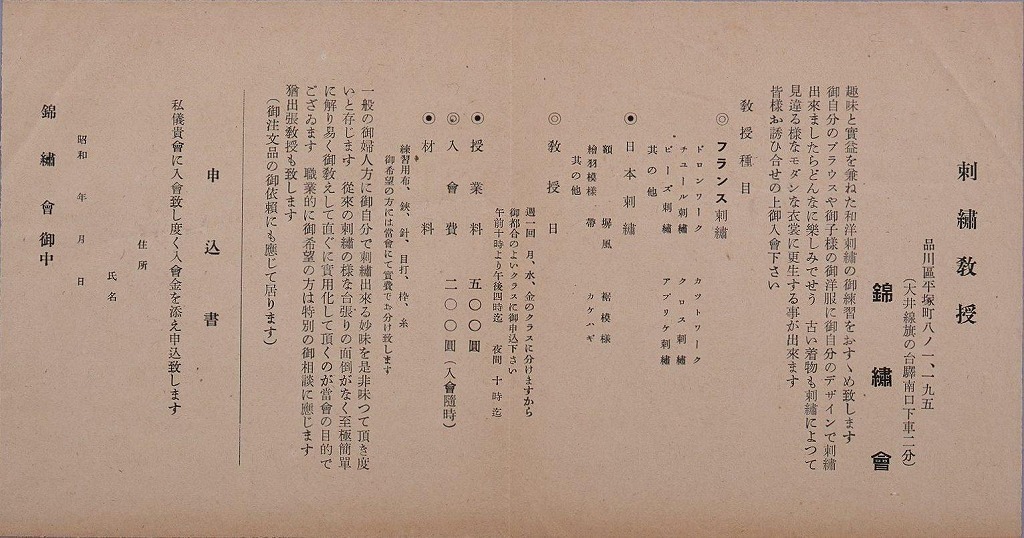 刺繡敎授
品川區平塚町八ノ一、一九五
（大井線旗の台驛南口下車二分）
錦繡會
趣味と實益を兼ねた和洋刺繡の御練習をおすゝめ致します
御自分のブラウスや御子樣の御洋服に御自分のデザインで刺繡
出來ましたらどんなに樂しみでせう　古い着物も刺繡によつて
見違る樣なモダンな衣裳に更生する事が出來ます
皆樣お誘ひ合せの上御入會下さい
敎授種目
◎フランス刺繡
ドロンワーク　カツトワーク
チユール刺繡　クロス刺繡
ビーズ刺繡　アプリケ刺繡
其の他
◉日本刺繡
額　塀風　裾模樣
繪羽模樣　帶　カケハギ
其の他
◎敎授日
週一回　月、水、金のクラスに分けますから
御都合のよいクラスに御申込下さい
午前十時より午後四時迄　夜間　十時迄
◉授業料　五〇〇圓
◎入會費　二〇〇圓（入會隨時）
◉材料
練習用布、鋏、針、目打、枠、糸
御希望の方には當會にて實費でお分け致します
一般の御婦人方に御自分で刺繡出來る妙味を是非味つて頂き度
いと存じます　從來の刺繡の樣な台張りの面倒がなく至極簡單
に解り易く御敎えして直ぐに實用化して頂くのが當會の目的で
ござゐます　職業的に御希望の方は特別の御相談に應じます
猶出張敎授も致します
（御注文品の御依賴にも應じて居ります）
申込書
私儀貴會に入會致し度く入會金を添え申込致します
住所
氏名
昭和　年　月　日
錦繡會御中